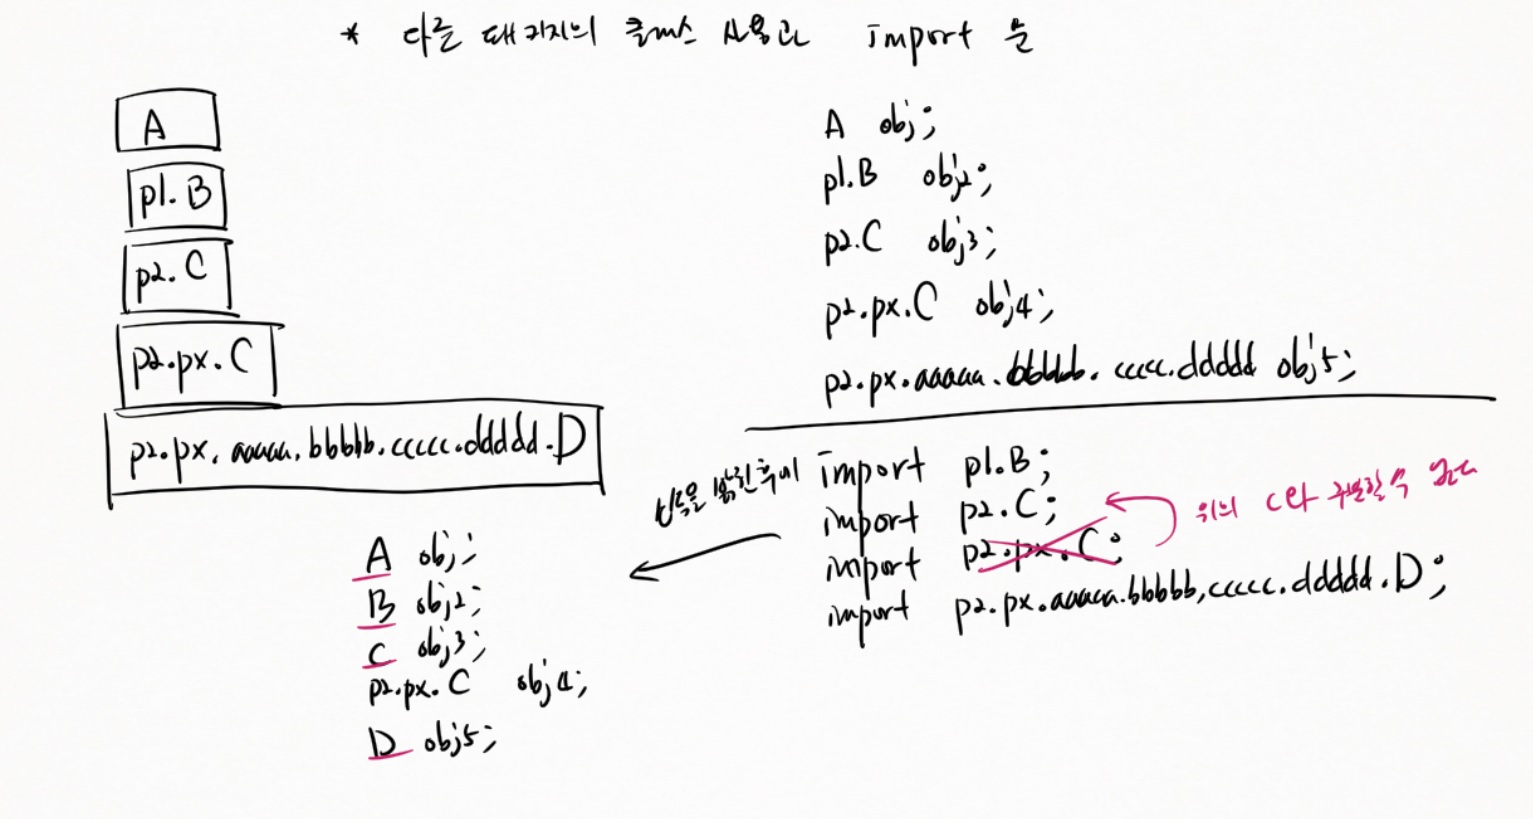 * 다른 패키지의 클래스 사용과 import 문
A
p1.B
p2.C
p2.px.C
p2.px.aaaaa.bbbbb.ccccc.ddddd.D
A obj;
p1.B obj2;
p2.C obj3;
p2.px.C obj4;
p2.px.aaaaa.bbbbb.cccc.ddddd obj5;
import p1.B;
import p2.C;
import p2.px.C;
import p2.px.aaaaa.bbbbb,ccccc.ddddd.D;
위의 C와 구분할 수 없다
신분을 밝힌 후에
A obj;
B obj2;
C obj3;
p2.px.C obj4;
D obj5;